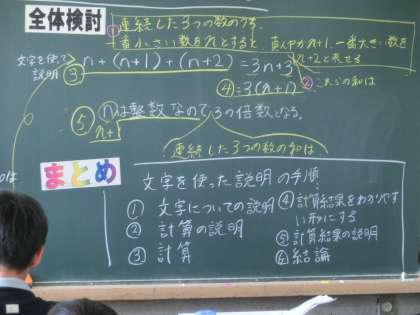 全体検討
①連続した3つの数のうち、
一番小さい数をnとすると、真ん中がn+1、一番大きい数を
n+2と表せる
文字を使って
説明
③n+(n+1)+(n+2)=3n+3
②これらの和は
④=3(n+1)
⑤nは整数なので3の倍数となる。
n+1
連続した3つの数の和は
まとめ
文字を使った説明の手順
①文字についての説明
②計算の説明
③計算
④計算結果をわかりやすい
形にする
⑤計算結果の説明
⑥結論